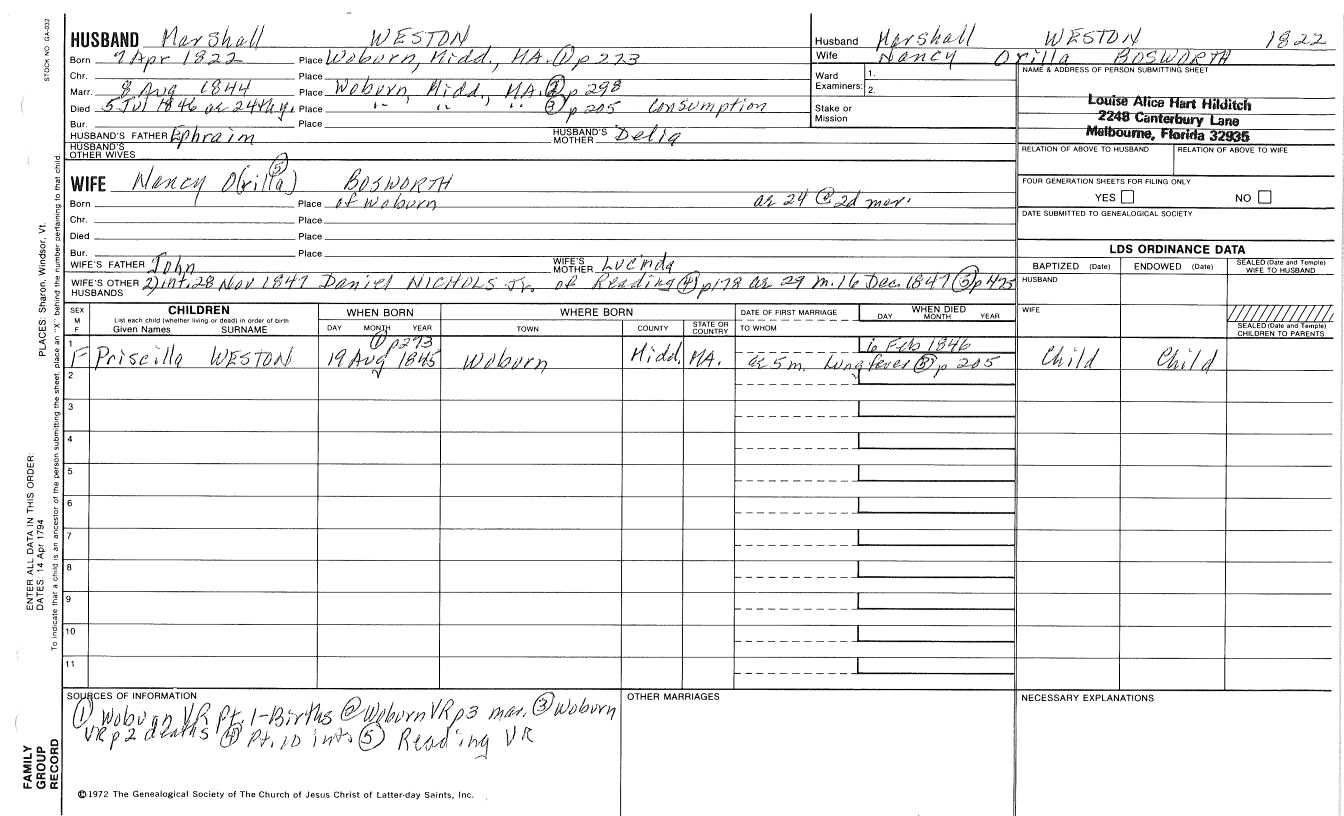 STOCK NO. GA-032
HUSBAND Marshall WESTON
Born 7 Apr 1822 Place Woburn, Midd., MA. ① p 273
Chr. Place
Marr. 8 Aug 1844 Place Woburn, Midd, MA. ② p 298
Died 5 Jul 1846 ae 24th y. Place " " " ③ p 205 Consumption
Bur. Place
HUSBAND'S FATHER Ephraim HUSBAND'S MOTHER Delia
HUSBAND'S OTHER WIVES
WIFE Nancy O(rilla) ⑤ BOSWORTH
Born Place of Woburn ae 24 @ 2d mar.
Chr. Place
Died Place
Bur. Place
WIFE'S FATHER John WIFE'S MOTHER Lucinda
WIFE'S OTHER HUSBANDS 2) int. 28 Nov 1847 Daniel NICHOLS Jr. of Reading ④ p 178 ae 29 m. 16 Dec. 1847 ⑤ p 475
Husband Marshall WESTON 1822
Wife Nancy Orilla BOSWORTH
Ward Examiners: 1.
2.
Stake or Mission
NAME & ADDRESS OF PERSON SUBMITTING SHEET
Louise Alice Hart Hilditch
2248 Canterbury Lane
Melbourne, Florida 32935
RELATION OF ABOVE TO HUSBAND RELATION OF ABOVE TO WIFE
FOUR GENERATION SHEETS FOR FILING ONLY
YES NO
DATE SUBMITTED TO GENEALOGICAL SOCIETY
LDS ORDINANCE DATA
BAPTIZED (Date) ENDOWED (Date) SEALED (Date and Temple) WIFE TO HUSBAND
HUSBAND
WIFE
SEALED (Date and Temple) CHILDREN TO PARENTS
SEX M F CHILDREN WHEN BORN WHERE BORN DATE OF FIRST MARRIAGE WHEN DIED
List each child (whether living or dead) in order of birth
Given Names SURNAME DAY MONTH YEAR TOWN COUNTY STATE OR COUNTRY TO WHOM DAY MONTH YEAR
① p 273 16 Feb 1846
1 F Priscilla WESTON 19 Aug 1845 Woburn Midd. MA. ae 5 m. Lung fever ③ p 205 Child Child
2
3
4
5
6
7
8
9
10
11
SOURCES OF INFORMATION
① Woburn VR Pt. 1-Births ② Woburn VR p3 mar. ③ Woburn
VR p 2 deaths ④ Pt. 10 ints ⑤ Reading VR
OTHER MARRIAGES
NECESSARY EXPLANATIONS
©1972 The Genealogical Society of The Church of Jesus Christ of Latter-day Saints, Inc.
ENTER ALL DATA IN THIS ORDER:
DATES: 14 Apr 1794 PLACES: Sharon, Windsor, Vt.
To indicate that a child is an ancestor of the person submitting the sheet, place an "X" behind the number pertaining to that child.
FAMILY GROUP RECORD